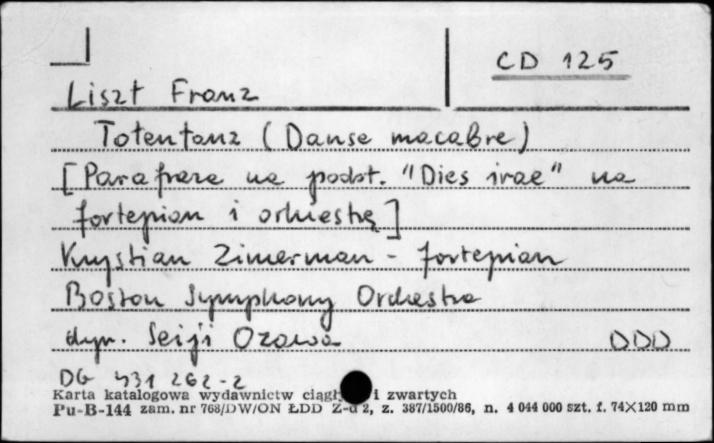 CD 125
Liszt Franz
Totentanz (Danse macabre)
[Parafraza na podst. "Dies irae" na
fortepian i orkiestrę]
Krystian Zimerman - fortepian
Boston Symphony Orchestra
dyr. Seiji Ozawa DDD
DG 431 262-2
Karta katalogowa wydawnictw i zwartych
Pu-B-144 zam. nr 768/DW/ON ŁDD 2, z. 387/1500/86, n. 4 044 000 szt. f. 74×120 mm